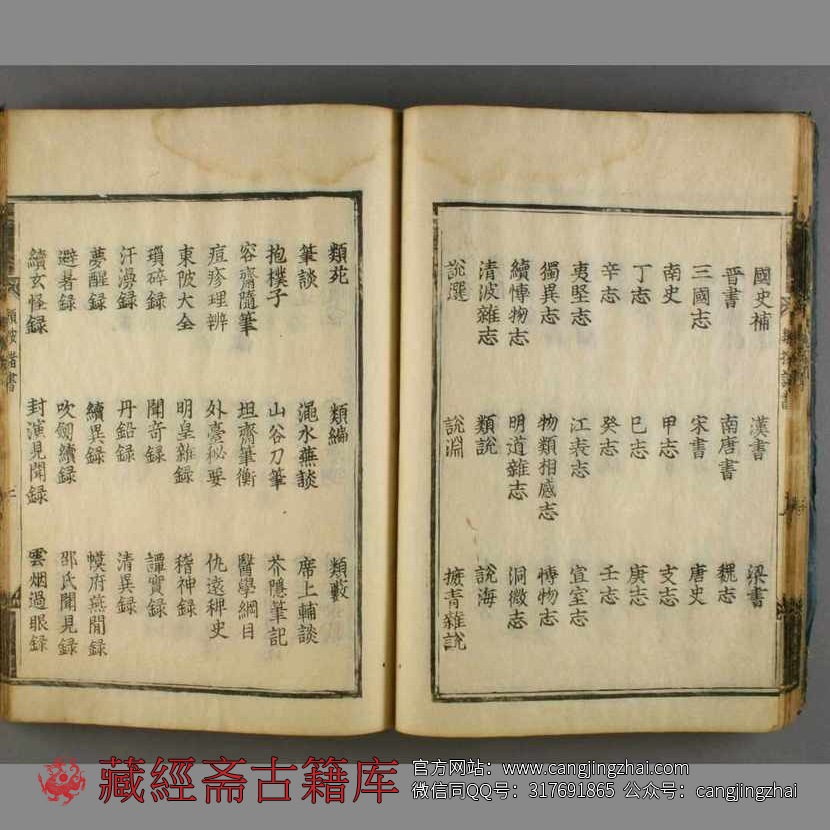 國史補 漢書 梁書
晉書 南唐書 魏志
三國志 宋書 唐史
南史 甲志 支志
丁志 巳志 庚志
辛志 癸志 壬志
夷堅志 江表志 宣室志
獨異志 物類相感志 博物志
續博物志 明道雜志 洞微志
清波雜志 類說 說海
說選 說淵 摭青雜說
類苑 類編 類藪
筆談 澠水燕談 席上輔談
抱樸子 山谷刀筆 芥隱筆記
容齋隨筆 坦齋筆衡 醫學綱目
痘疹理辨 外臺秘要 仇遠稗史
東陂大全 明皇雜錄 稽神錄
瑣碎錄 聞奇錄 譚賓錄
汗漫錄 丹鉛錄 清異錄
夢醒錄 續異錄 幙府燕閒錄
避暑錄 吹劒續錄 邵氏聞見錄
續玄怪錄 封演見聞錄 雲烟過眼錄
藏經斋古籍库
官方网站：www.cangjingzhai.com
微信同QQ号：317691865 公众号：cangjingzhai